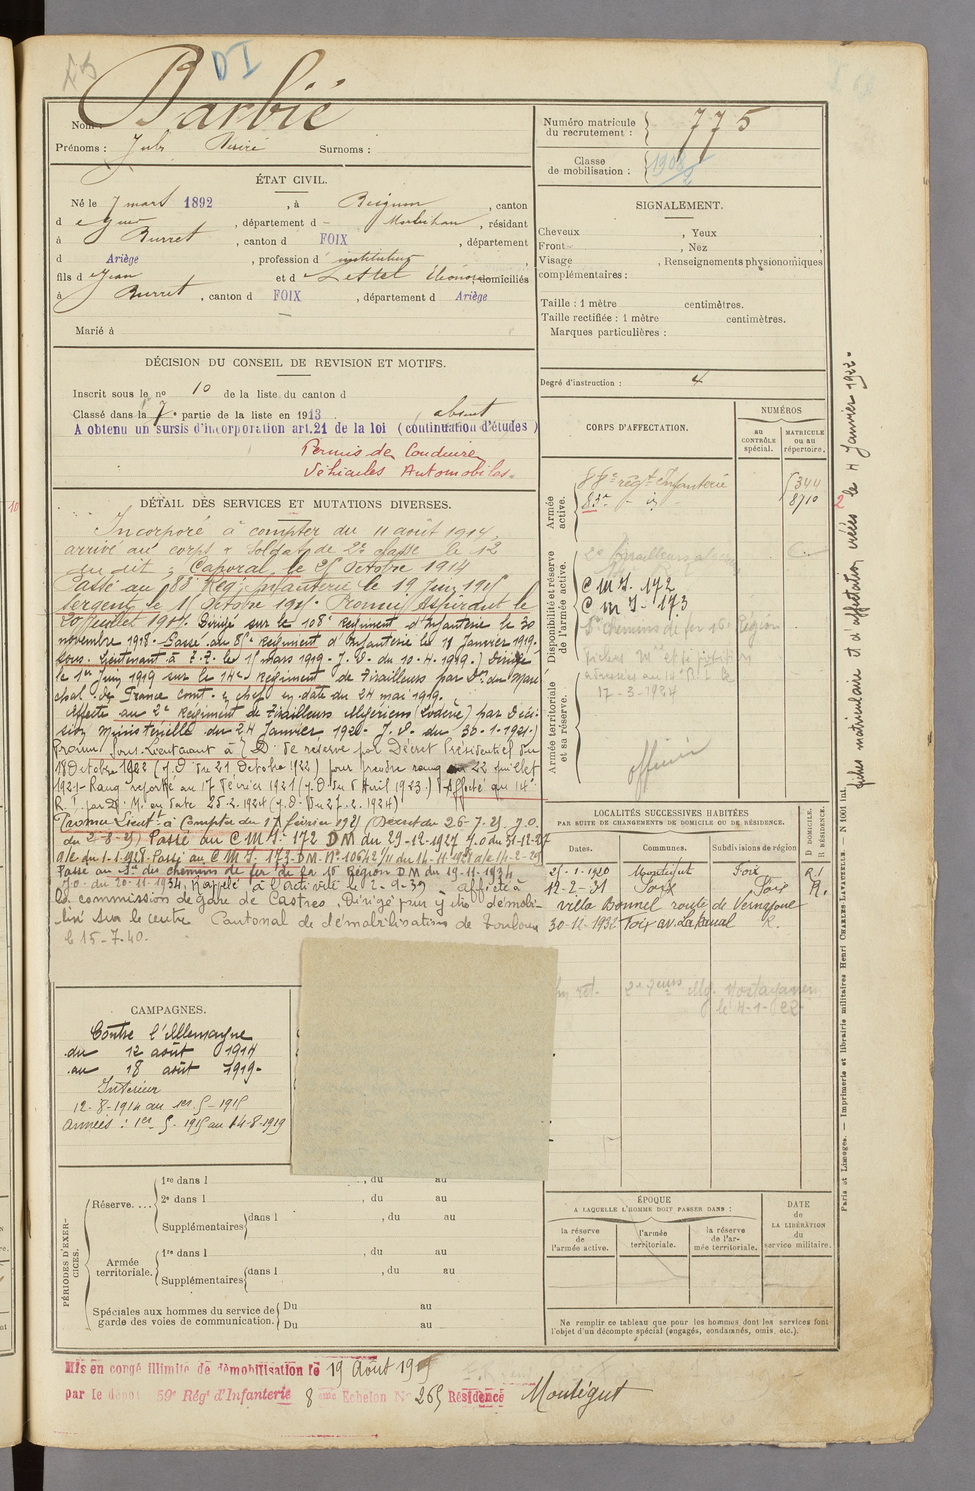 DI
Nom : Barbié
Prénoms : Jules Désiré Surnoms :
ÉTAT CIVIL.
Né le 7 mars 1892, à Reignon, canton
d e Guer, département d Morbihan, résidant
à Burret, canton d FOIX, département
d Ariège, profession d instituteur
fils d e Jean et d e Lestel Éléonore, domiciliés
à Burret, canton d FOIX, département d Ariège
Marié à
DÉCISION DU CONSEIL DE REVISION ET MOTIFS.
Inscrit sous le no 10 de la liste du canton d
Classé dans la 7e partie de la liste en 1913. absent
A obtenu un sursis d'incorporation art. 21 de la loi (continuation d'études)
Permis de Conduire
Véhicules Automobiles.
DÉTAIL DES SERVICES ET MUTATIONS DIVERSES.
Incorporé à compter du 11 août 1914,
arrivé au corps & soldat de 2e classe le 12
au dit ; Caporal le 25 Octobre 1914
Passé au 88e Rég. Infanterie le 19 Juin 1915
Sergent le 15 Octobre 1915. Promu Aspirant le
20 Juillet 1918. Dirigé sur le 108e Régiment d'Infanterie le 30
novembre 1918. Passé au 85e Régiment d'Infanterie le 19 Janvier 1919.
Sous-Lieutenant à T.T. le 15 mars 1919. J.O. du 10.4.1919.) Dirigé
le 1er Juin 1919 sur le 14e Régiment de Tirailleurs par Don du Maré
chal de France Comt en chef en date du 24 mai 1919.
Affecté au 2e Régiment de Tirailleurs Algériens (Lodève) par Déci-
sion Ministérielle du 24 Janvier 1920. J.O. du 30-1-1921.)
Promu Sous-Lieutenant à T.D. de réserve par Décret Présidentiel du
18 Octobre 1922 (J.O du 21 Octobre 1922) pour prendre rang du 22 Juillet
1921. Rang reporté au 17 février 1921 (J.O du 5 Avril 1923.) Affecté au 14e
R.I. par D. M. en date 25.2.1924 (J.O. Du 27.2.1924)
Promu Lieutt à Compter du 17 février 1925 (Décret du 26-7-25 J.O.
du 2-8-25) Passé au C M I. 172 DM du 29-12-1927 J.O du 31-12-27
a/c du 1-1-1928. Passé au C.M.I. 173-DM. No 10642/11 du 14-11-1928 a/c 14-2-29
Passé au Sn des chemins de fer de la 16e Région DM du 19-11-1934
J.O. du 20-11-1934. Rappelé à l'activité le 2-9-39 - affecté à
la commission de gare de Castres. Dirigé pour y être démobi-
lisé sur le centre Cantonal de démobilisation de Toulouse
le 15-7-40.
CAMPAGNES.
Contre l'Allemagne
du 12 août 1914
au 18 août 1919-
Intérieur
12-8-1914 au 1er-5-1915
Armées : 1er-5-1915 au 14-8-1919
PÉRIODES D'EXER-
CICES.
Réserve....
1re dans l , du au
2e dans l , du au
Supplémentaires dans l , du au
Armée
territoriale.
1re dans l , du au
Supplémentaires dans l , du au
Spéciales aux hommes du service de
garde des voies de communication.
Du au
Du au
Mis en congé illimité de démobilisation le 19 Août 1919
par le dépôt 59e Régt d'Infanterie 8eme Echelon No 265 Résidence Montégut
Numéro matricule
du recrutement : 775
Classe
de mobilisation :
SIGNALEMENT.
Cheveux , Yeux ,
Front , Nez
Visage , Renseignements physionomiques
complémentaires :
Taille : 1 mètre centimètres.
Taille rectifiée : 1 mètre centimètres.
Marques particulières :
Degré d'instruction : 4
CORPS D'AFFECTATION.
NUMÉROS
au
CONTRÔLE
spécial.
MATRICULE
ou au
répertoire.
Armée
active.
régt Infanterie 5344
83e - id 8710
Disponibilité et réserve
de l'armée active.
C M I. 172
C M I. 173
Sn Chemins de fer 16e Région
17-3-1934
Armée territoriale
et sa réserve.
officier
LOCALITÉS SUCCESSIVES HABITÉES
PAR SUITE DE CHANGEMENTS DE DOMICILE OU DE RÉSIDENCE.
Dates. Communes. Subdivisions de région
D. DOMICILE.
R. RÉSIDENCE.
25-1-1920 Montégut Foix R.
12-2-31 Foix Foix R.
villa Bonnel route de Vernajoul
30-11-1932 Foix av. Lakanal R.
le 4-1-22
ÉPOQUE
A LAQUELLE L'HOMME DOIT PASSER DANS :
la réserve
de
l'armée active.
l'armée
territoriale.
la réserve
de l'ar-
mée territoriale.
DATE
de
LA LIBÉRATION
du
service militaire.
Ne remplir ce tableau que pour les hommes dont les services font
l'objet d'un décompte spécial (engagés, condamnés, omis, etc.).
fiches matriculaire et d'affectation créées le 4 Janvier 1922-
Paris et Limoges. — Imprimerie et librairie militaires Henri CHARLES-LAVAUZELLE. — N 1001 int.